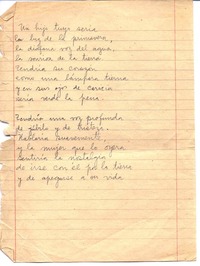 Un hijo tuyo sería
la luz de la primavera,
la diáfana voz del agua,
la sonrisa de la tierra
Tendría su corazón
como una lámpara tierna
y en sus ojos de cereza
sería verde la pena.
Tendría una voz profunda
de júbilo y de tristeza.
Hablaría suavemente,
y la mujer que lo oyera
sentiría la nostalgia
de irse con él por la tierra
y de apegarse a su vida